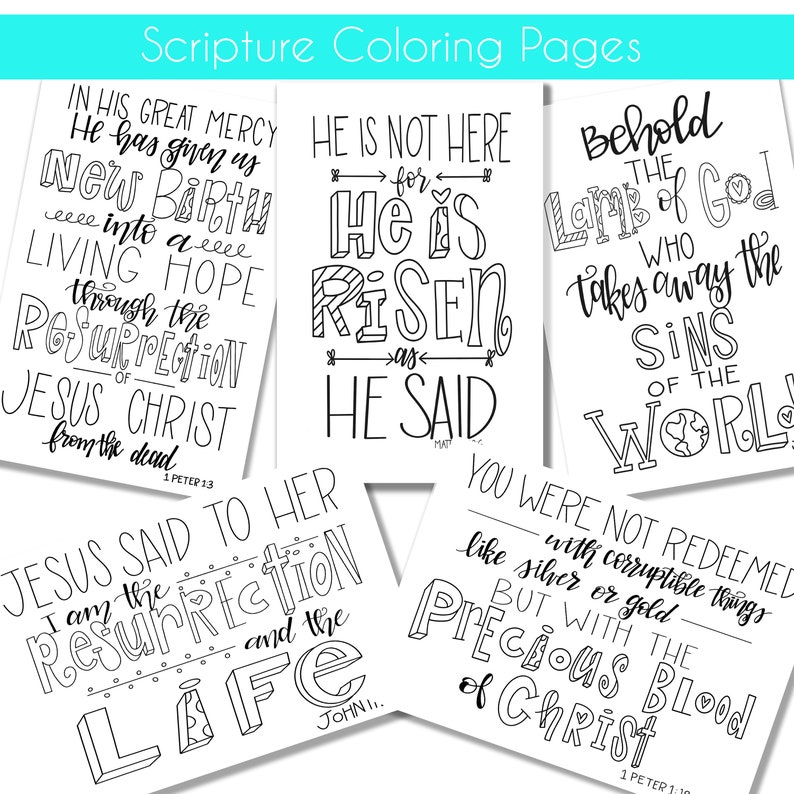 Scripture Coloring Pages
IN HIS GREAT MERCY
He has given us
NEW BIRTH
into a
LIVING HOPE
through the
RESURRECTION
OF
JESUS CHRIST
from the dead
1 PETER 1:3
HE IS NOT HERE
for
He is
RISEN
as
HE SAID
Behold
THE
LAMB of GOD
WHO
takes away the
SINS
OF THE
WORLD
JESUS SAID TO HER
I am the
RESURRECTION
and the
LIFE
JOHN 11:
YOU WERE NOT REDEEMED
with corruptible things
like silver or gold
BUT WITH THE
PRECIOUS BLOOD
of CHRIST
1 PETER 1:18